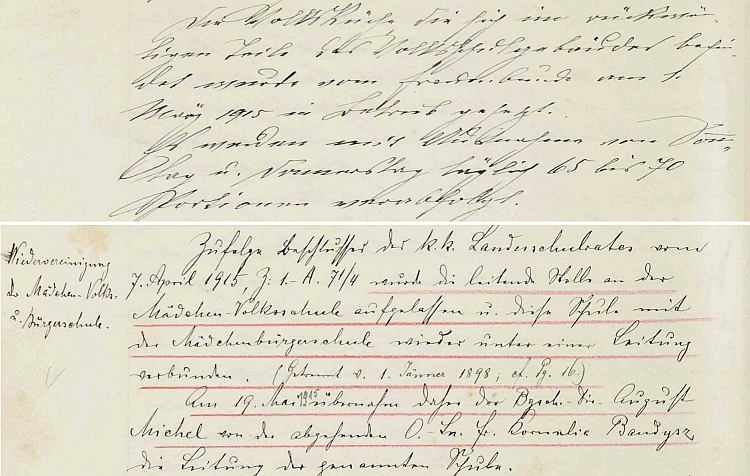 Die Volksküche die sich im rückwär-
tigen Teile des Volksschulgebäudes befin-
det wurde vom Frauenbunde am 1.
März 1915 in Betrieb gesetzt.
Es werden mit Ausnahme von Sonn-
tag u. Donnerstag täglich 65 bis 70
Portionen verabfolgt.
Wiedervereinigung
der Mädchen-Volks-
u. Bürgerschule.
Zufolge Beschlusses des k.k. Landesschulrates vom
7. April 1915, Z: 1.-A. 71/4 wurde die leitende Stelle an der
Mädchen-Volksschule aufgelassen u. diese Schule mit
der Mädchenbürgerschule wieder unter einer Leitung
verbunden. (Getrennt v. 1. Jänner 1898; cf. pg. 16.)
Am 19. Mai 1915 übernahm daher der Bgsch.-Dir. August
Michel von der abgehenden O.-Ln. Fr. Kornelia Bandysz
die Leitung der genannten Schule.